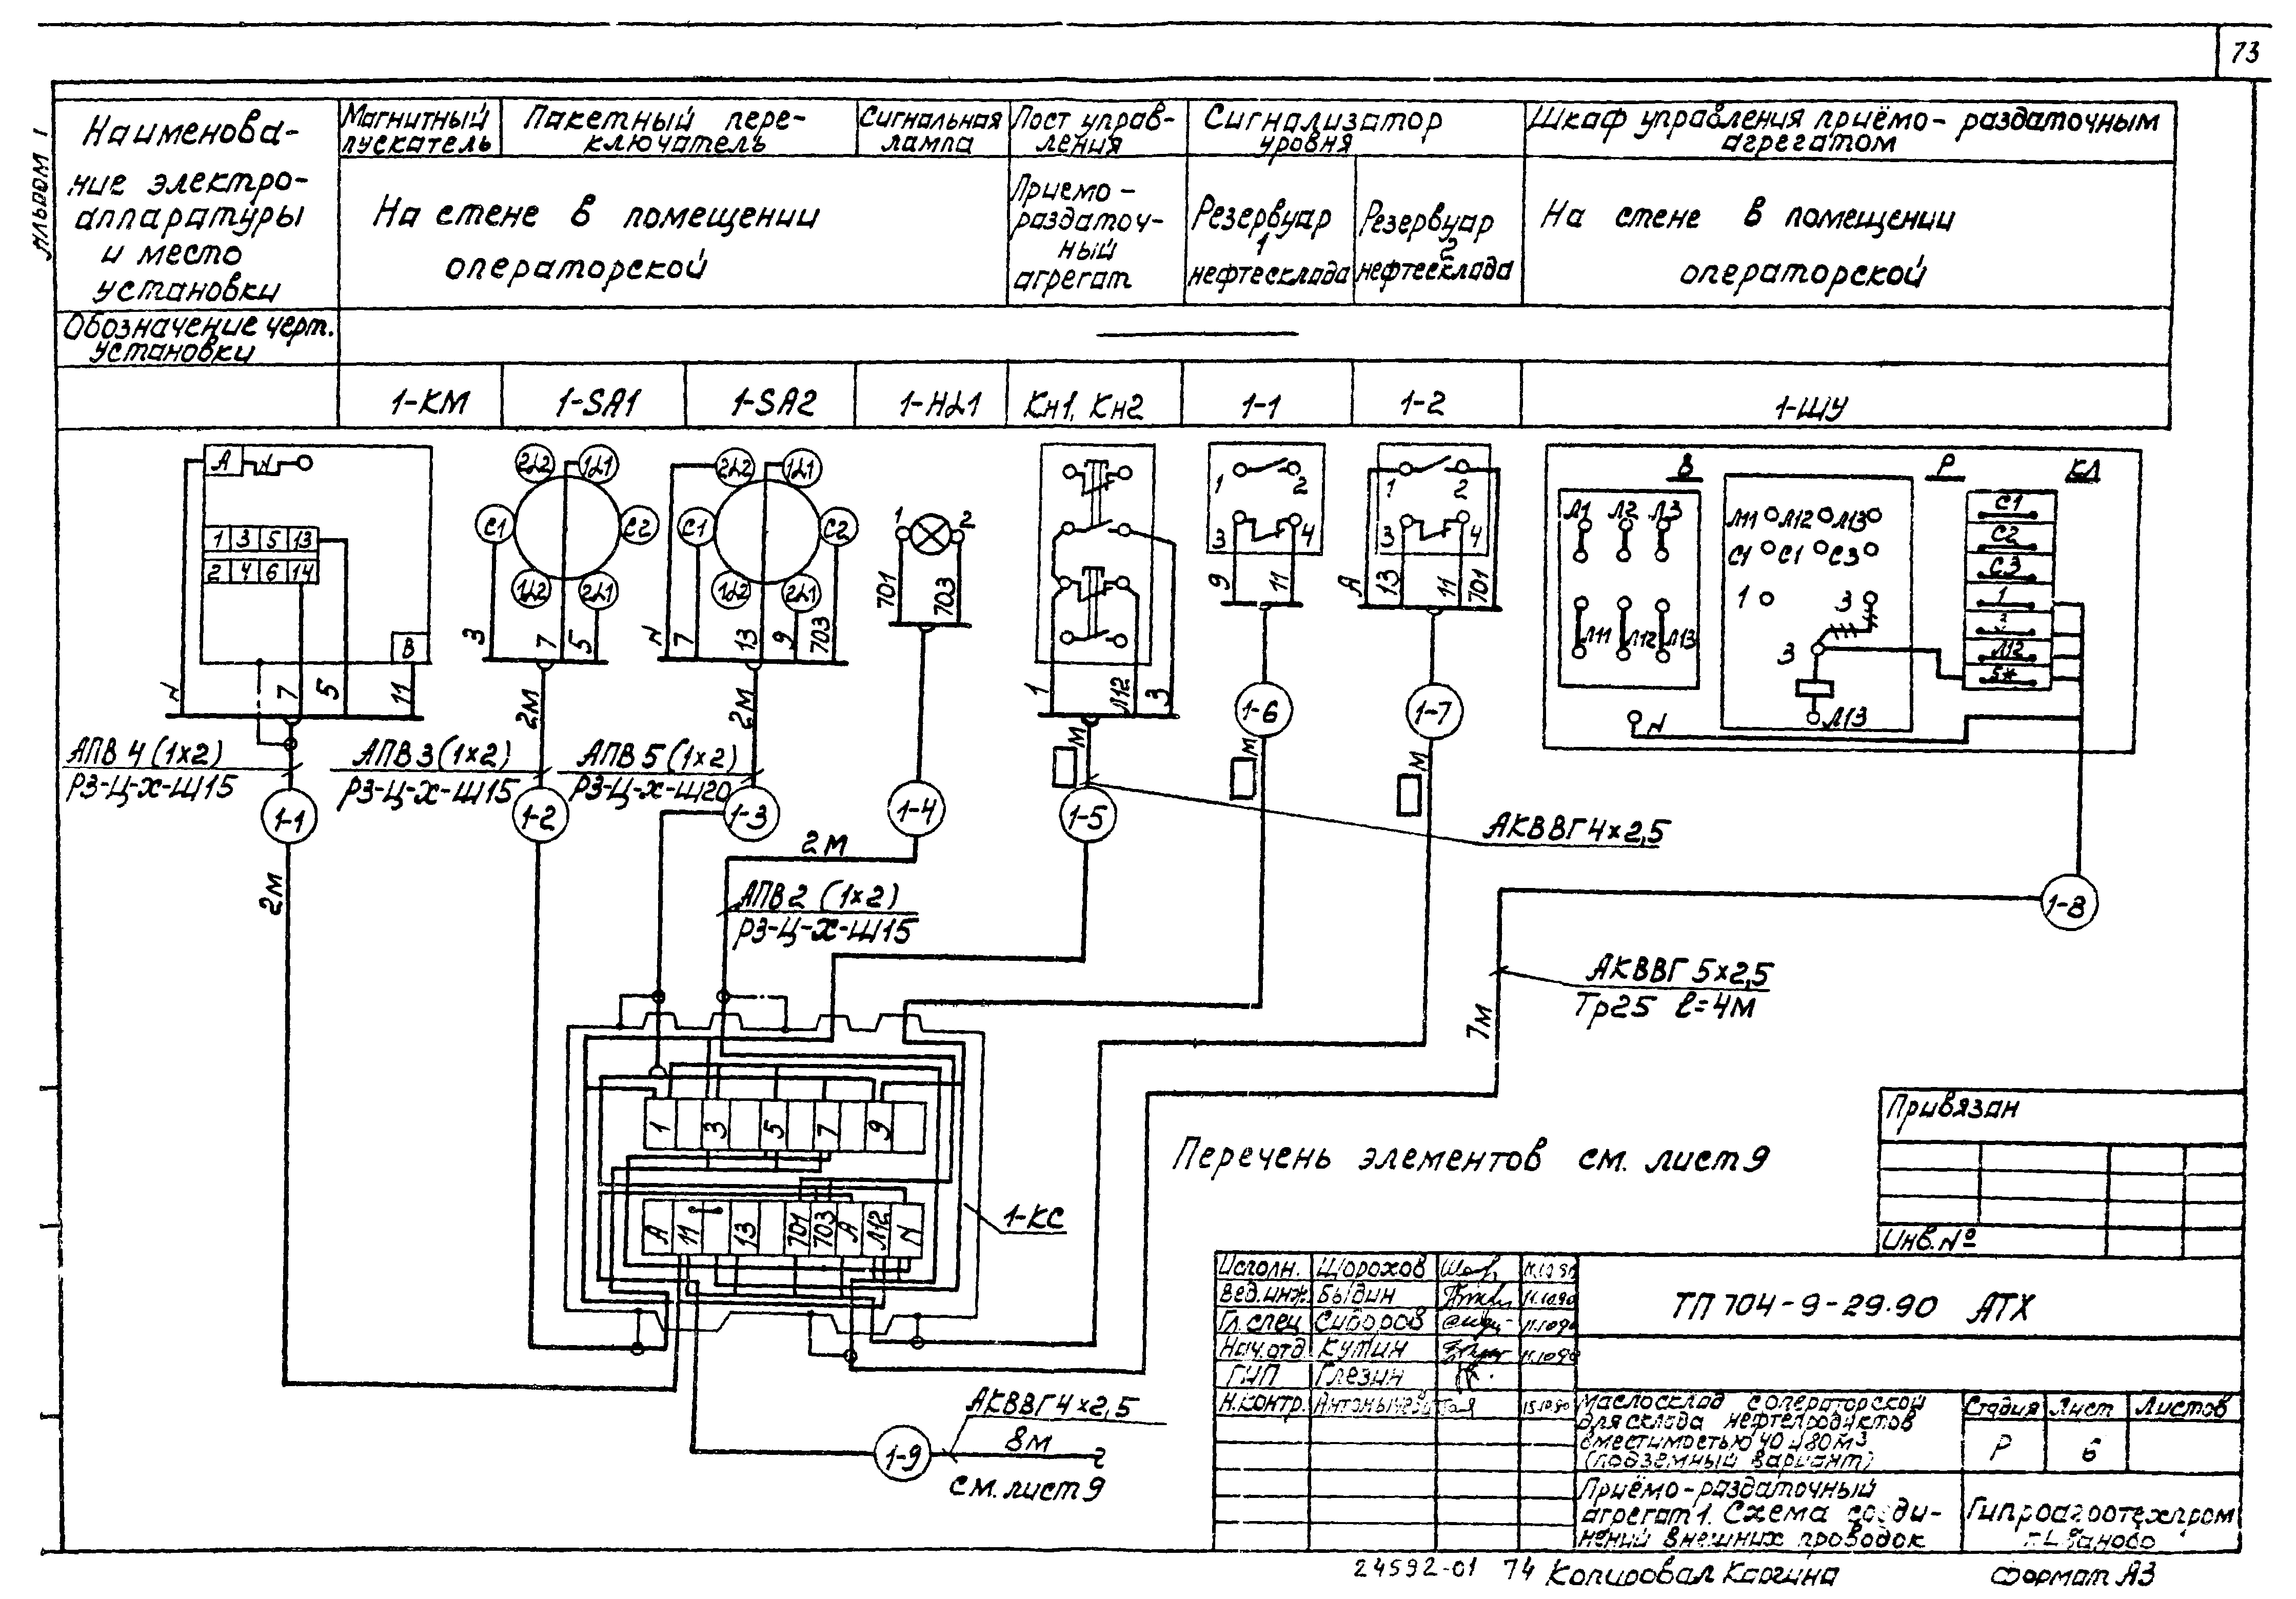 73
Альбом 1
Наименова-
ние электро-
аппаратуры
и место
установки
Магнитный
пускатель
Пакетный пере-
ключатель
Сигнальная
лампа
Пост управ-
ления
Сигнализатор
уровня
Шкаф управления приёмо-раздаточным
агрегатом
На стене в помещении
операторской
Приемо-
раздаточ-
ный
агрегат
Резервуар
1
нефтесклада
Резервуар
2
нефтесклада
На стене в помещении
операторской
Обозначение черт.
установки
1-КМ
1-SA1
1-SA2
1-HL1
Кн1, Кн2
1-1
1-2
1-ШУ
А
1 3 5 13
2 4 6 14
В
N 7 5 11
2L2 1L1
С1 С2
1L2 2L1
3 7 5
2L2 1L1
С1 С2
1L2 2L1
N 7 13 9 703
1 2
701 703
1 Л12 3
1 2
3 4
9 11
1 2
3 4
А 13 11 701
В
Р
КЛ
Л1 Л2 Л3
Л11 Л12 Л13
N
Л11 Л12 Л13
С1 С1 С3
1 3
3
Л13
С1
С2
С3
1
2
Л12
5*
АПВ 4 (1х2)
РЗ-Ц-Х-Ш15
АПВ 3 (1х2)
РЗ-Ц-Х-Ш15
АПВ 5 (1х2)
РЗ-Ц-Х-Ш20
2М
2М
М
М
М
1-1
1-2
1-3
1-4
1-5
1-6
1-7
1-8
2М
2М
АПВ 2 (1х2)
РЗ-Ц-Х-Ш15
АКВВГ 4х2,5
АКВВГ 5х2,5
Тр25 ℓ=4М
7М
1 3 5 7 9
А 11 13 701 703 А Л12 N
1-КС
Перечень элементов см. лист 9
АКВВГ 4х2,5
8М
1-9
см. лист 9
Привязан
Инв. №
Исполн. Шорохов 11.10.90
Вед.инж. Быдин 11.10.90
Гл. спец Сидоров 11.10.90
Нач.отд Кутин 11.10.90
ГИП Глезин
Н.контр. 15.10.90
ТП 704-9-29.90 АТХ
Маслосклад с операторской
для склада нефтепродуктов
вместимостью 40 и 80 м³
(подземный вариант)
Стадия Лист Листов
Р 6
Приёмо-раздаточный
агрегат 1. Схема соеди-
нений внешних проводок
Гипроагротехпром
г. Иваново
24592-01 74 Копировал Каргина
формат А3